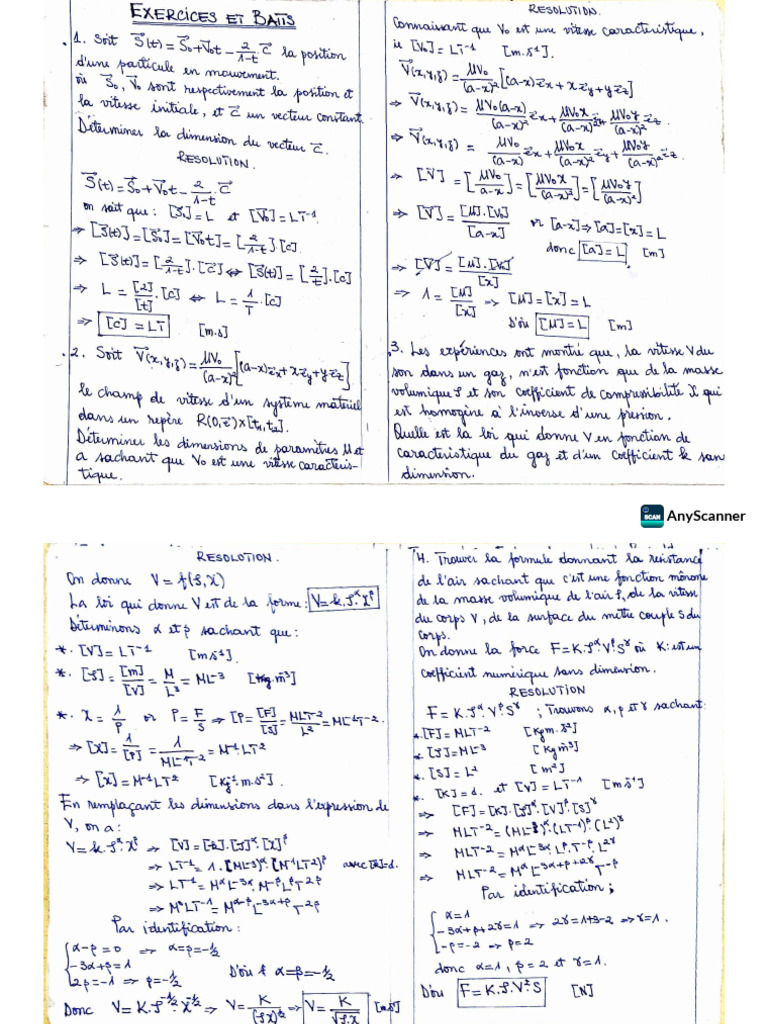 EXERCICES ET BATTS
1. Soit S⃗(t) = S⃗₀ + V⃗₀t - 2/(1-t) · C⃗ la position
d'une particule en mouvement.
où S⃗₀, V⃗₀ sont respectivement la position et
la vitesse initiale, et C⃗ un vecteur constant.
Déterminer la dimension du vecteur C⃗.
RESOLUTION.
S⃗(t) = S⃗₀ + V⃗₀t - 2/(1-t) · C⃗
on sait que : [S⃗₀] = L et [V⃗₀] = LT⁻¹
⇒ [S⃗(t)] = [S⃗₀] = [V⃗₀t] = [2/(1-t)].[C]
⇒ [S⃗(t)] = [2/(1-t)].[C⃗] ⇔ [S⃗(t)] = [2/t].[C]
⇒ L = [2]/[t].[C] ⇔ L = 1/T.[C]
⇒ [C] = LT [m.s]
2. Soit V⃗(x,y,z) = μV₀/(a-x)² [(a-x)e⃗x + xe⃗y + ye⃗z]
le champ de vitesse d'un système matériel
dans un repère R(O,e⃗)x[t₁,t₂].
Déterminer les dimensions de paramètres μ et
a sachant que V₀ est une vitesse caractéris-
tique.
RESOLUTION.
Connaissant que V₀ est une vitesse caractéristique,
ie [V₀] = LT⁻¹ [m.s⁻¹].
V⃗(x,y,z) = μV₀/(a-x)² [(a-x)e⃗x + xe⃗y + ye⃗z]
⇒ V⃗(x,y,z) = μV₀(a-x)/(a-x)² e⃗x + μV₀x/(a-x)² e⃗y + μV₀y/(a-x)² e⃗z
⇒ V⃗(x,y,z) = μV₀/(a-x) e⃗x + μV₀x/(a-x)² e⃗y + μV₀y/(a-x)² e⃗z.
⇒ [V⃗] = [μV₀/(a-x)] = [μV₀x/(a-x)²] = [μV₀y/(a-x)²]
⇒ [V⃗] = [μ].[V₀]/[a-x] or [a-x] ⇒ [a] = [x] = L
donc [a] = L [m]
⇒ [V⃗] = [μ].[V₀]/[x]
⇒ 1 = [μ]/[x] ⇒ [μ] = [x] = L
D'où [μ] = L [m]
3. Les expériences ont montré que, la vitesse V du
son dans un gaz, n'est fonction que de la masse
volumique ρ et son coefficient de compressibilité χ qui
est homogène à l'inverse d'une pression.
Quelle est la loi qui donne V en fonction de
caractéristique du gaz et d'un coefficient k sans
dimension.
SCAN AnyScanner
RESOLUTION.
On donne V = f(ρ,χ)
La loi qui donne V est de la forme : V = k.ρᵅ.χᵝ
Déterminons α et β sachant que :
*. [V] = LT⁻¹ [ms⁻¹].
*. [ρ] = [m]/[V] = M/L³ = ML⁻³ [kg.m⁻³]
*. χ = 1/P or P = F/S ⇒ [P = [F]/[S] = MLT⁻²/L² = ML⁻¹T⁻².
⇒ [χ] = 1/[P] = 1/ML⁻¹T⁻² = M⁻¹LT²
⇒ [χ] = M⁻¹LT² [kg⁻¹.m.s²].
En remplaçant les dimensions dans l'expression de
V, on a :
V = k.ρᵅ.χᵝ ⇒ [V] = [k].[ρ]ᵅ.[χ]ᵝ
⇒ LT⁻¹ = 1.[ML⁻³]ᵅ.[M⁻¹LT²]ᵝ avec [k]=1.
⇒ LT⁻¹ = MᵅL⁻³ᵅ.M⁻ᵝLᵝT²ᵝ
⇒ M⁰LT⁻¹ = Mᵅ⁻ᵝL⁻³ᵅ⁺ᵝT²ᵝ
Par identification :
α-β = 0 ⇒ α=β=-1/2
-3α+β = 1
2β = -1 ⇒ β=-1/2 D'où α=β=-1/2
Donc V = K.ρ⁻¹ᐟ².χ⁻¹ᐟ² ⇒ V = K/(ρχ)¹ᐟ² ⇒ V = K/√ρ.χ [ms⁻¹]
4. Trouver la formule donnant la résistance
de l'air sachant que c'est une fonction monôme
de la masse volumique de l'air ρ, de la vitesse
du corps V, de la surface du mètre couple S du
corps.
On donne la force F = K.ρᵅ.VᵝSᵞ où K: est un
coefficient numérique sans dimension.
RESOLUTION
F = K.ρᵅ.VᵝSᵞ ; Trouvons α, β et γ sachant:
*. [F] = MLT⁻² [kgm.s⁻²]
*. [ρ] = ML⁻³ [kgm⁻³]
*. [S] = L² [m²]
*. [K] = 1. et [V] = LT⁻¹ [ms⁻¹]
⇒ [F] = [K].[ρ]ᵅ.[V]ᵝ.[S]ᵞ
⇒ MLT⁻² = (ML⁻³)ᵅ.(LT⁻¹)ᵝ.(L²)ᵞ
⇒ MLT⁻² = MᵅL⁻³ᵅ.Lᵝ.T⁻ᵝ.L²ᵞ
⇒ MLT⁻² = MᵅL⁻³ᵅ⁺ᵝ⁺²ᵞT⁻ᵝ
Par identification ;
α = 1
-3α+β+2γ = 1 ⇒ 2γ = 1+3-2 ⇒ γ = 1.
-β = -2 ⇒ β = 2
donc α=1, β=2 et γ=1.
D'où F = K.ρ.V²S [N]